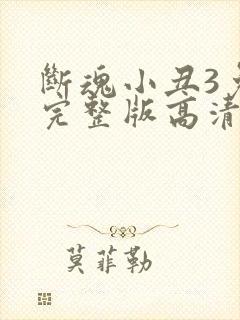 斷魂小丑3
完整版高清
莫菲勒